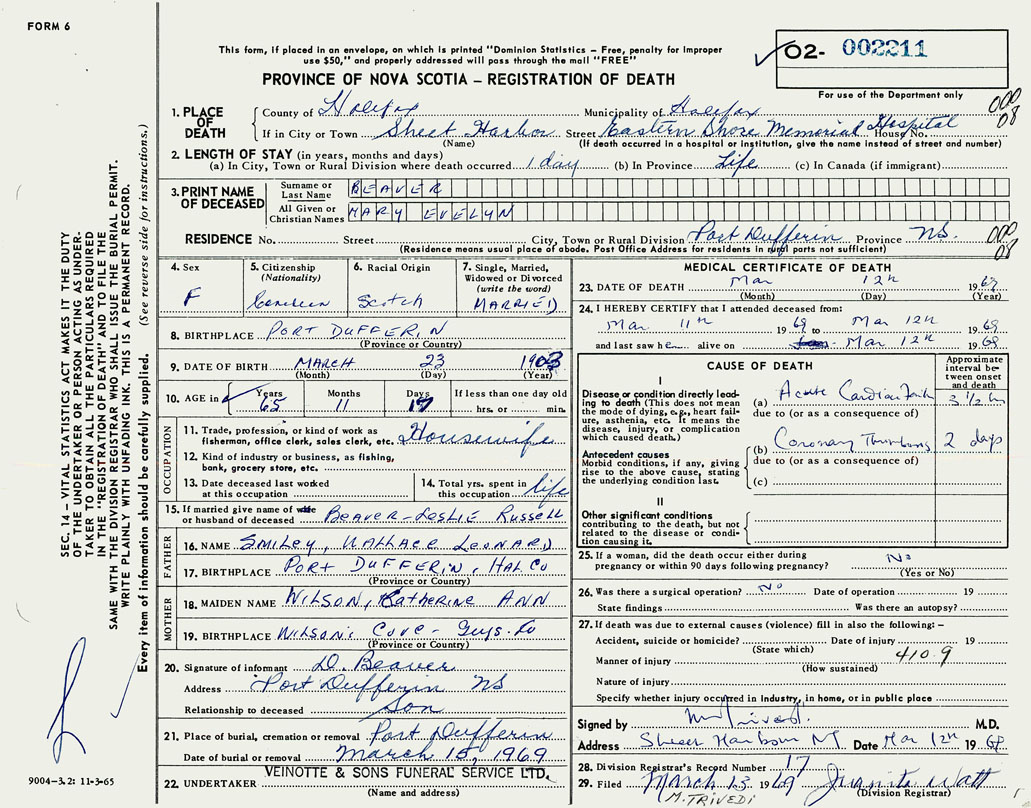 FORM 6
This form, if placed in an envelope, on which is printed "Dominion Statistics – Free, penalty for improper
use $50," and properly addressed will pass through the mail "FREE"
PROVINCE OF NOVA SCOTIA – REGISTRATION OF DEATH
O2- 002211
For use of the Department only
000
08
1. PLACE OF DEATH
County of Halifax Municipality of Halifax
If in City or Town Sheet Harbor Street Eastern Shore Memorial Hospital House No.
(Name) (If death occurred in a hospital or institution, give the name instead of street and number)
2. LENGTH OF STAY (in years, months and days)
(a) In City, Town or Rural Division where death occurred 1 day (b) In Province Life (c) In Canada (if immigrant)
3. PRINT NAME OF DECEASED
Surname or Last Name BEAVER
All Given or Christian Names MARY EVELYN
RESIDENCE No. Street City, Town or Rural Division Port Dufferin Province NS.
(Residence means usual place of abode. Post Office Address for residents in rural parts not sufficient)
000
08
4. Sex F
5. Citizenship (Nationality)
6. Racial Origin Scotch
7. Single, Married, Widowed or Divorced (write the word) MARRIED
8. BIRTHPLACE PORT DUFFERIN
(Province or Country)
9. DATE OF BIRTH MARCH 23 1903
(Month) (Day) (Year)
10. AGE in Years 65 Months 11 Days If less than one day old hrs. or min.
OCCUPATION
11. Trade, profession, or kind of work as fisherman, office clerk, sales clerk, etc. Housewife
12. Kind of industry or business, as fishing, bank, grocery store, etc.
13. Date deceased last worked at this occupation
14. Total yrs. spent in this occupation life
15. If married give name of wife or husband of deceased Beaver-Leslie Russell
FATHER
16. NAME SMILEY, WALLACE LEONARD
17. BIRTHPLACE PORT DUFFERIN, HAL CO
(Province or Country)
MOTHER
18. MAIDEN NAME WILSON, Katherine ANN
19. BIRTHPLACE WILSON'S COVE - Guys. Co
(Province or Country)
20. Signature of informant D. Beaver
Address Port Dufferin NS
Relationship to deceased Son
21. Place of burial, cremation or removal Port Dufferin
Date of burial or removal March 15, 1969
22. UNDERTAKER VEINOTTE & SONS FUNERAL SERVICE LTD.
(Name and address)
MEDICAL CERTIFICATE OF DEATH
23. DATE OF DEATH Mar 12th 1969
(Month) (Day) (Year)
24. I HEREBY CERTIFY that I attended deceased from:
Mar 11th 1969 to Mar 12th 1969
and last saw h alive on Mar 12th 1969
CAUSE OF DEATH
Approximate interval between onset and death
I
Disease or condition directly leading to death (This does not mean the mode of dying, e.g., heart failure, asthenia, etc. It means the disease, injury, or complication which caused death.)
(a) Acute Cardiac 3 1/2
due to (or as a consequence of)
Antecedent causes
Morbid conditions, if any, giving rise to the above cause, stating the underlying condition last.
(b) Coronary Thrombosis 2 days
due to (or as a consequence of)
(c)
II
Other significant conditions contributing to the death, but not related to the disease or condition causing it.
25. If a woman, did the death occur either during pregnancy or within 90 days following pregnancy? No
(Yes or No)
26. Was there a surgical operation? No Date of operation 19
State findings Was there an autopsy?
27. If death was due to external causes (violence) fill in also the following: –
Accident, suicide or homicide? Date of injury 19
(State which) 410.9
Manner of injury
(How sustained)
Nature of injury
Specify whether injury occurred in Industry, in home, or in public place
Signed by M Trivedi M.D.
Address Sheet Harbour Date Mar 12th 1969
28. Division Registrar's Record Number 17
29. Filed March 13 1969 Juanita Watt
M. TRIVEDI (Division Registrar)
SEC. 14 – VITAL STATISTICS ACT MAKES IT THE DUTY
OF THE UNDERTAKER OR PERSON ACTING AS UNDER-
TAKER TO OBTAIN ALL THE PARTICULARS REQUIRED
IN THE "REGISTRATION OF DEATH" AND TO FILE THE
SAME WITH THE DIVISION REGISTRAR WHO SHALL ISSUE THE BURIAL PERMIT.
WRITE PLAINLY WITH UNFADING INK. THIS IS A PERMANENT RECORD.
Every item of information should be carefully supplied. (See reverse side for instructions.)
9004-3.2: 11-3-65